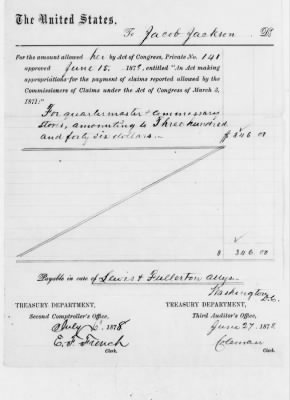 The United States,
To Jacob Jackson Dr.
For the amount allowed her by Act of Congress, Private No. 141
approved June 15. 1878, entitled "An Act making
appropriations for the payment of claims reported allowed by the
Commissioners of Claims under the Act of Congress of March 3,
1871:"
For quartermaster & commissary
stores, amounting to Three hundred
and forty six dollars. $ 346 00
$ 346. 00
Payable in care of Lewis & Fullerton Attys.
Washington
D.C.
TREASURY DEPARTMENT,
Second Comptroller's Office,
July 6 1878
E. F. French
Clerk.
TREASURY DEPARTMENT,
Third Auditor's Office,
June 27 1878
Coleman
Clerk.